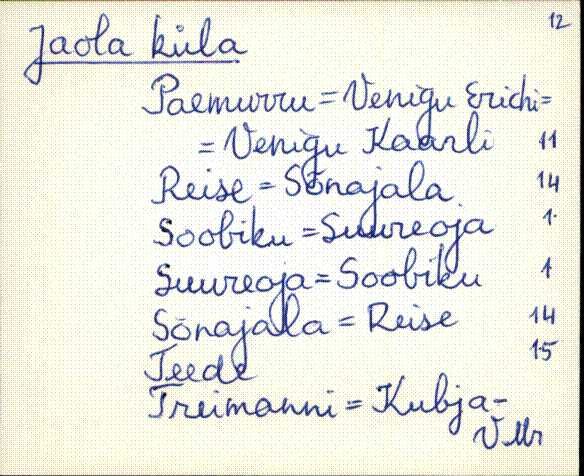 12
Jaola küla
Paemurru = Venigu Erichi=
= Venigu Kaarli 11
Reise = Sõnajala 14
Soobiku = Suureoja 1
Suureoja = Soobiku 1
Sõnajala = Reise 14
Teede 15
Treimanni = Kubja-
V